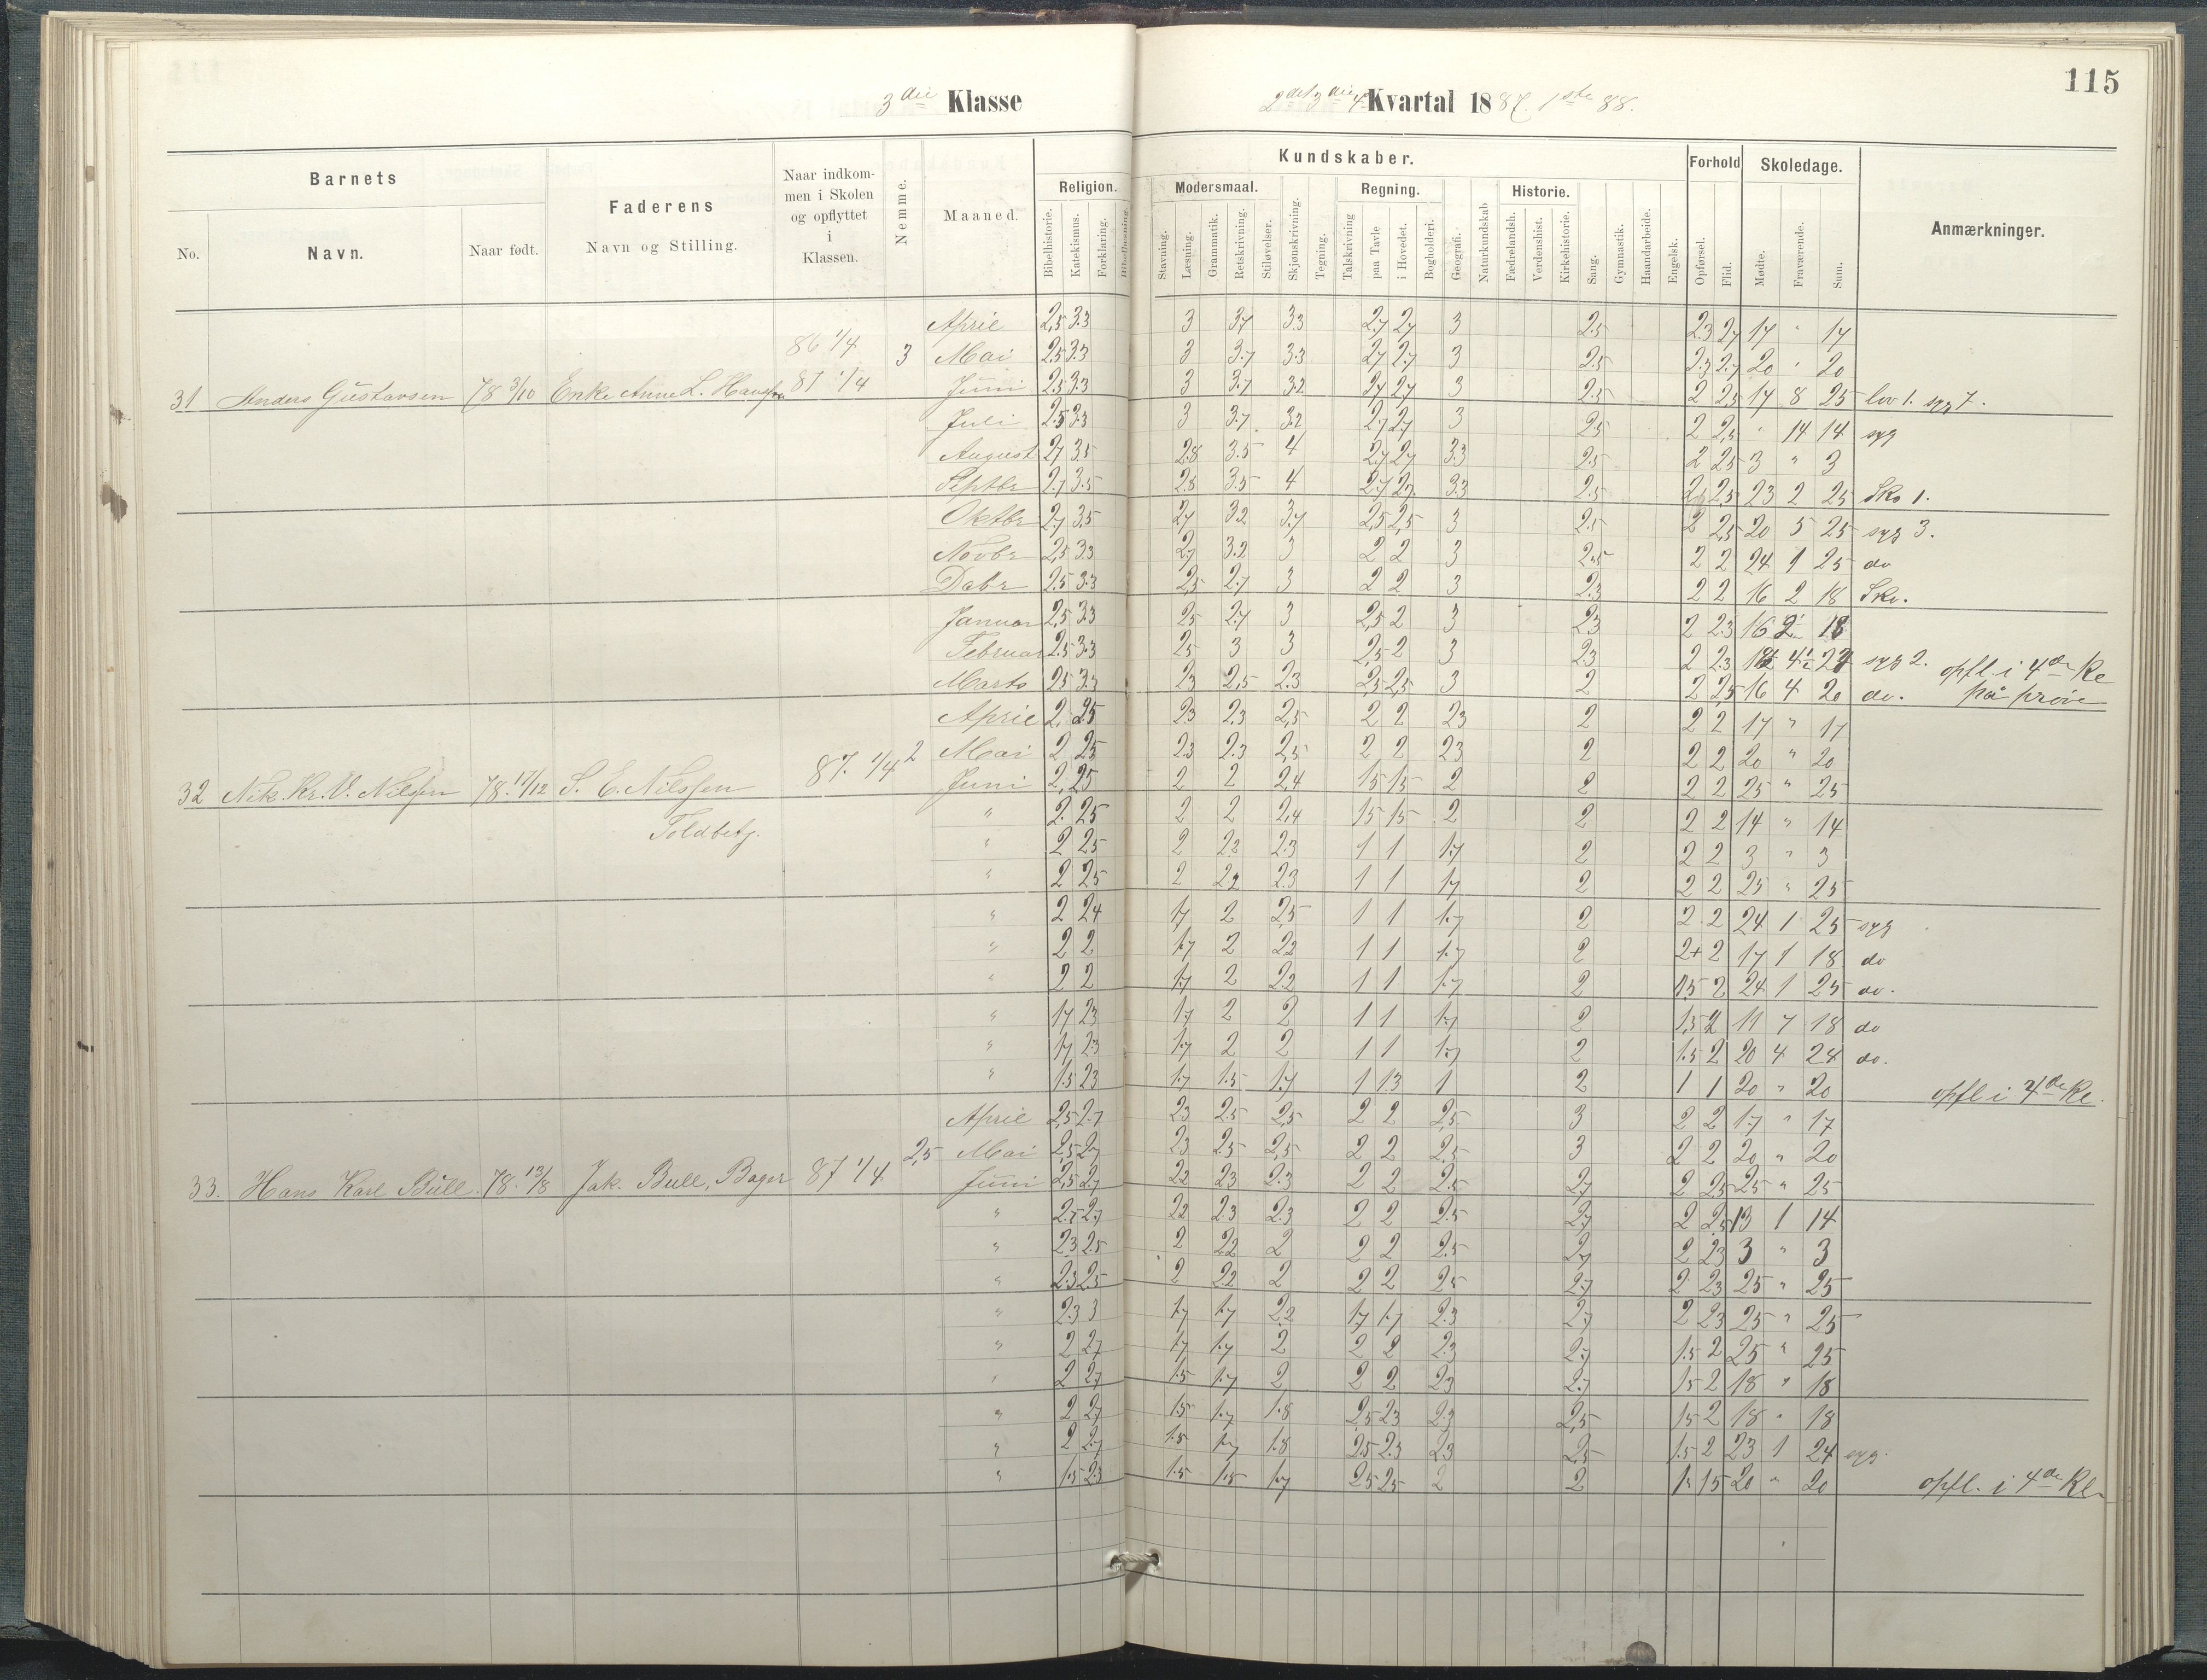 115
3die Klasse 2det 3die 4de Kvartal 1887. 1ste 88.
Barnets Faderens Naar indkommen i Skolen og opflyttet i Klassen. Nemme. Maaned. Kundskaber. Forhold Skoledage. Anmærkninger.
No. Navn. Naar født. Navn og Stilling.
Religion. Modersmaal. Regning. Historie.
Bibelhistorie. Katekismus. Forklaring. Bibellæsning. Stavning. Læsning. Grammatik. Retskrivning. Stiløvelser. Skjønskrivning. Tegning. Talskrivning paa Tavle i Hovedet. Bogholderi. Geografi. Naturkundskab Fædrelandsh. Verdenshist. Kirkehistorie. Sang. Gymnastik. Haandarbeide. Engelsk. Opførsel. Flid. Mødte. Fraværende. Sum.
April 2,5 3.3 3 3,7 3.3 2,7 2,7 3 2.5 2.3 2,7 17 " 17
86 1/4 3 Mai 2.5 3.3 3 3.7 3.3 2,7 2.7 3 2.5 2.3 2.7 20 " 20
31 Anders Gustavsen 78 3/10 Enke Anne L. 87 1/4 Juni 2.5 3.3 3 3.7 3.2 2,7 2,7 3 2.5 2 2,5 17 8 25 lov 1. syg 7.
Juli 2.5 3.3 3 3.7 3.2 2,7 2,7 3 2.5 2 2,5 " 14 14 syg
August 2,7 3.5 2.8 3.5 4 2,7 2,7 3.3 2.5 2 2.5 3 " 3
Septbr 2.7 3.5 2.8 3.5 4 2,7 2.7 3.3 2.5 2,5 23 2 25 Sko 1.
Oktbr 2,7 3.5 2,7 3.2 3.7 2,5 2,5 3 2.5 2 2,5 20 5 25 syg 3.
Novbr 2,5 3.3 2,7 3.2 3 2 2 3 2.5 2 2 24 1 25 do
Dcbr 2.5 3.3 2,5 2.7 3 2 2 3 2.3 2 2 16 2 18 Sko.
Januar 2,5 3.3 2.5 2.7 3 2,5 2 3 2.3 2 2.3 16 2 18
Februar 2.5 3.3 2.5 3 3 2,5 2 3 2.3 2 2.3 syg 2. opfl. i 4de Kl
Marts 2.5 3.3 2.3 2,5 2.3 2,5 2,5 3 2 2 2,5 16 4 20 do. på prøve
April 2 2.5 2.3 2.3 2,5 2 2 2.3 2 2 2 17 " 17
2 Mai 2 2.5 2.3 2.3 2,5 2 2 2.3 2 2 2 20 " 20
32 Nik. Kr. V. Nilssen 78. 17/12 S. E. Nilssen 87. 1/4 Juni 2 2.5 2 2 2.4 1.5 1.5 2 2 2 2 25 " 25
Toldbetj. " 2. 2.5 2 2 2,4 1.5 1.5 2 2 2 2 14 " 14
" 2 2.5 2 2.2 2.3 1 1 1.7 2 2 2 3 " 3
" 2 2.5 2 2.2 2.3 1 1 1.7 2 2 2 25 " 25
" 2 2.4 1.7 2 2,5 1 1 1.7 2 2. 2 24 1 25 syg
" 2 2 1.7 2 2.2 1 1 1.7 2 2+ 2 17 1 18 do
" 2 2 1.7 2 2.2 1 1 1.7 2 1,5 2 24 1 25 do.
" 1.7 2.3 1.7 2 2 1 1 1.7 2 1,5 2 11 7 18 do
" 1.7 2.3 1.7 2 2 1 1 1.7 2 1.5 2 20 4 24 do.
" 1.5 2.3 1.7 1.5 1.7 1 1.3 1 2 1 1 20 " 20 opfl i 4de Kl.
April 2,5 2.7 2.3 2.5 2,5 2 2 2,5 3 2 2 17 " 17
2,5 Mai 2,5 2.7 2.3 2.5 2,5 2 2 2,5 3 2 2 20 " 20
33. Hans Karl Bull 78. 13/8 Jak. Bull, Bager 87 1/4 Juni 2,5 2.7 2.2 2.3 2.3 2 2 2.5 2.7 2 2.5 25 " 25
" 2.5 2.7 2.2 2.3 2.3 2 2 2.5 2.7 2 2.5 13 1 14
" 2.3 2.5 2 2.2 2 2 2 2.5 2.7 2 2.3 3 " 3
" 2.3 2.5 2 2.2 2 2 2 2.5 2.7 2 2.3 25 " 25
" 2.3 3 1.7 1.7 2.2 1.7 1.7 2.3 2.7 2 2.3 25 " 25
" 2 2.7 1.7 1.7 2 2 2 2.3 2.7 1.5 2 25 " 25
" 2 2.7 1.5 1.7 2 2 2 2.3 2.7 1.5 2 18 " 18
" 2 2.7 1.5 1.7 1.8 2,5 2.3 2.3 2,5 1.5 2 18 " 18
" 2 2.7 1.5 1.7 1.8 2.5 2.3 2.3 2,5 1.5 2 23 1 24 syg.
" 1.5 2.3 1.5 1.5 1.7 2.5 2.5 2 2 1.5 20 " 20 opfl. i 4de Kl.